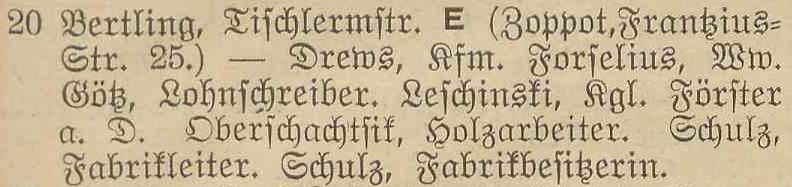 20 Bertling, Tischlermstr. E (Zoppot, Frantzius-
Str. 25.) — Drews, Kfm. Forselius, Ww.
Götz, Lohnschreiber. Leschinski, Kgl. Förster
a. D. Oberschachtsik, Holzarbeiter. Schulz,
Fabrikleiter. Schulz, Fabrikbesitzerin.